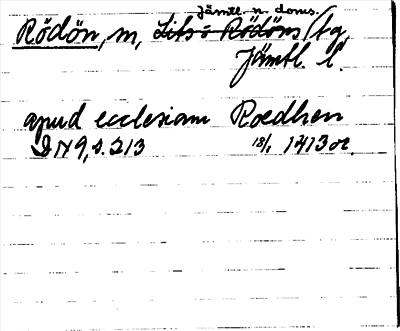 jämtl. n. doms.
Rödön, m, Lits- o Rödöns tg,
Jämtl. l.
apud ecclesiam Roedhen
DN 9, s. 213 18/1 1413 or.